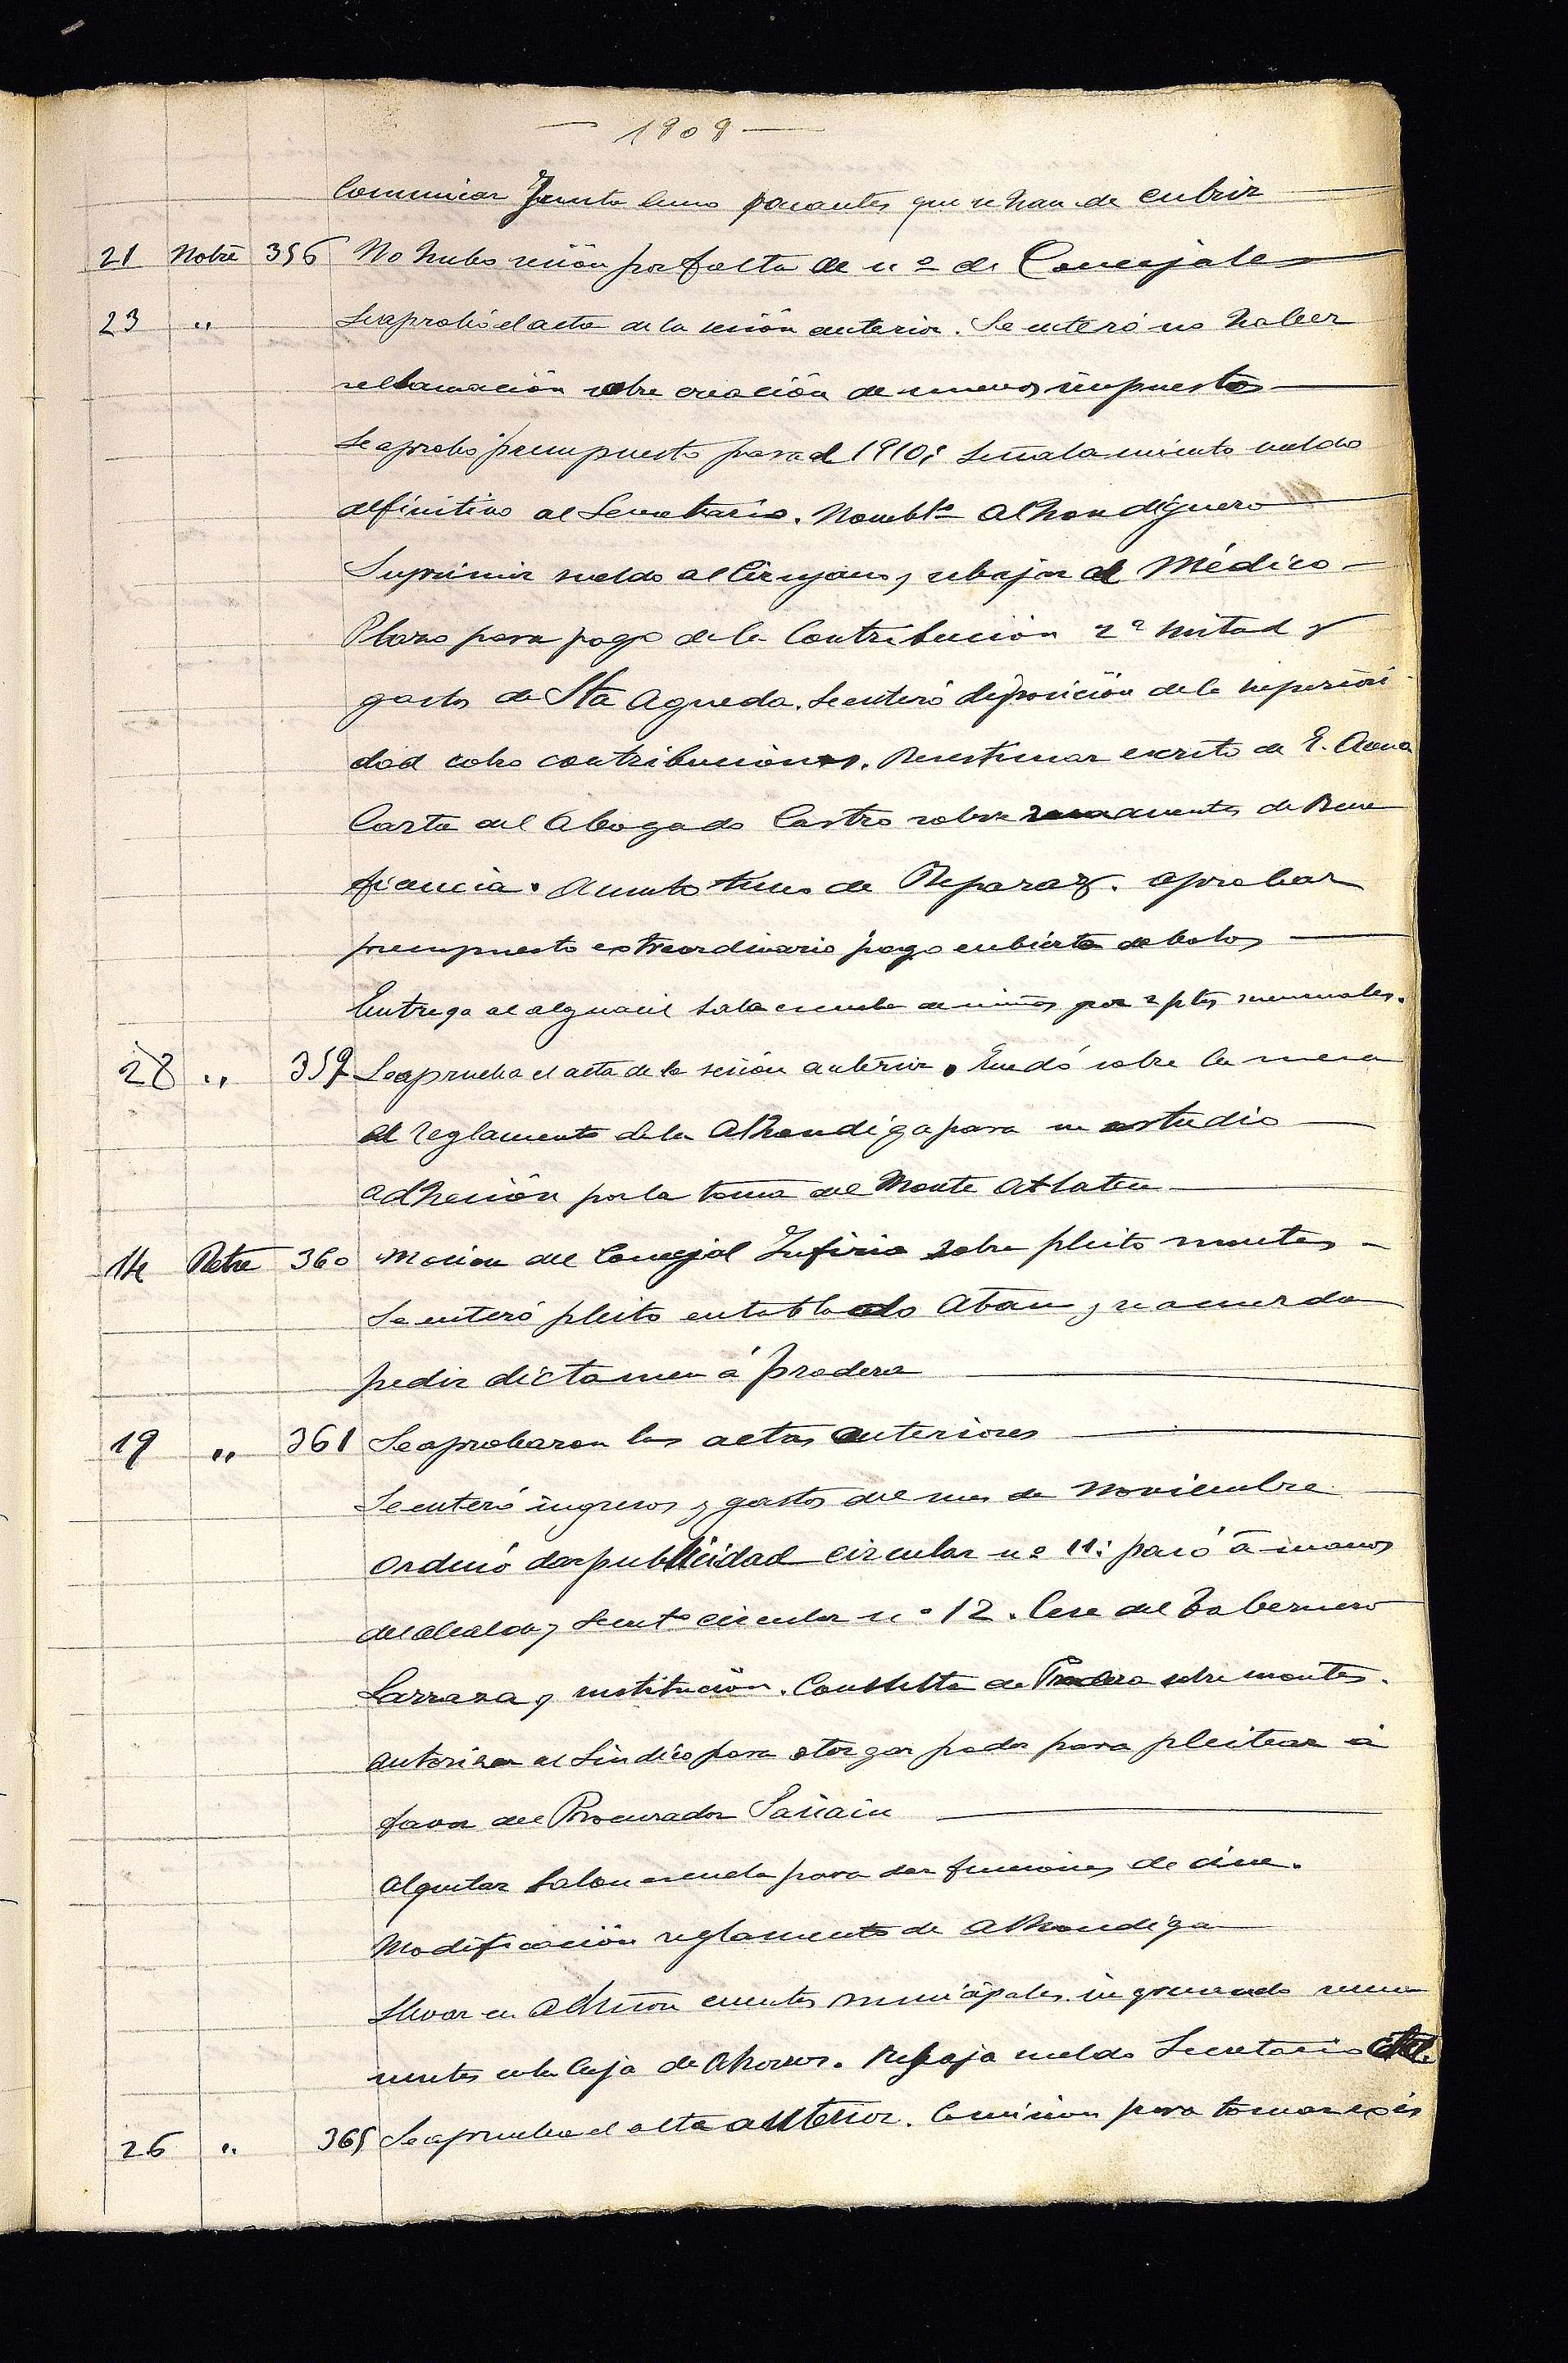 — 1909 —
Comunicar Junta Censo vacantes que se han de cubrir
21 Nobre 356 No hubo sesión por falta de nº de Concejales
23 " Se aprobó el acta de la sesión anterior. Se enteró no haber
reclamación sobre creación de nuevos impuestos
Se aprobó presupuesto para el 1910; señalamiento sueldo
definitivo al Secretario. Nombto Alhondiguero
Suprimir sueldo al Cirujano y rebajar al Médico
Plazo para pago de la Contribución 2ª mitad y
gastos de Sta Agueda. Se enteró disposición de la superiori
dad cobro contribuciones. Desestimar escrito de E.
Carta del Abogado Castro sobre remanentes de Bene
ficencia. Asunto de Reparaz. aprobar
presupuesto extraordinario pago cubierta de bolos
Entrega al alguacil sala escuela de niños por 2 ptas mensuales.
28 " 359 Se aprueba el acta de la sesión anterior. Quedó sobre la mesa
el reglamento de la Alhondiga para su estudio
adhesión por la toma del Monte Atlaten
14 Dbre 360 Mocion del Concejal Zufiria sobre pleito montes
Se enteró pleito entablado Atau y se acuerda
pedir dictamen á Pradera
19 " 361 Se aprobaron las actas anteriores
Se enteró ingresos y gastos del mes de Noviembre
Ordenó dar publicidad circular nº 11; pasó á manos
del alcalde y Secreto circular nº 12. Cese del Tabernero
Larraza y sustitución. Consulta de Pradera sobre montes.
autorizar al Sindico para otorgar poder para pleitear á
favor del Procurador Sariain
Alquilar Salon escuela para dar funciones de cine.
Modificación reglamento de Alhondiga
Llevar en Admón cuentas municipales ingresando rema
nentes en la Caja de Ahorros. Rebaja sueldo Secretario
26 " 365 Se aprueba el acta anterior. Comision para tomar